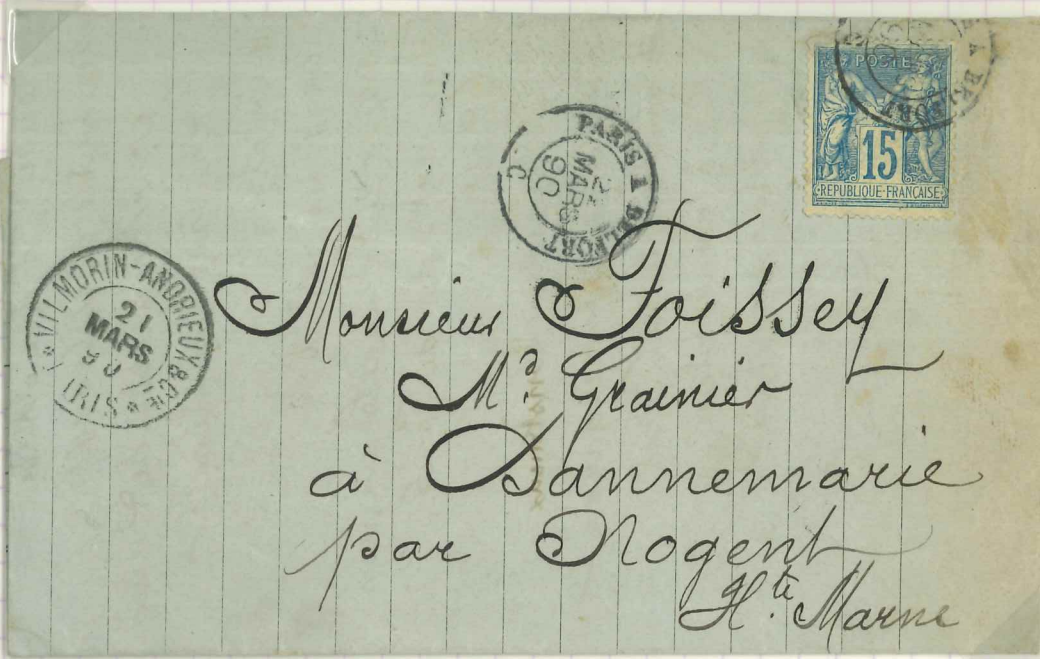 POSTES
15
RÉPUBLIQUE FRANÇAISE
BELFORT
PARIS À BELFORT
MARS
90
C
VILMORIN-ANDRIEUX & CIE
21
MARS
90
Monsieur Foissey
Md. Grainier
à Dannemarie
par Nogent
Hte. Marne